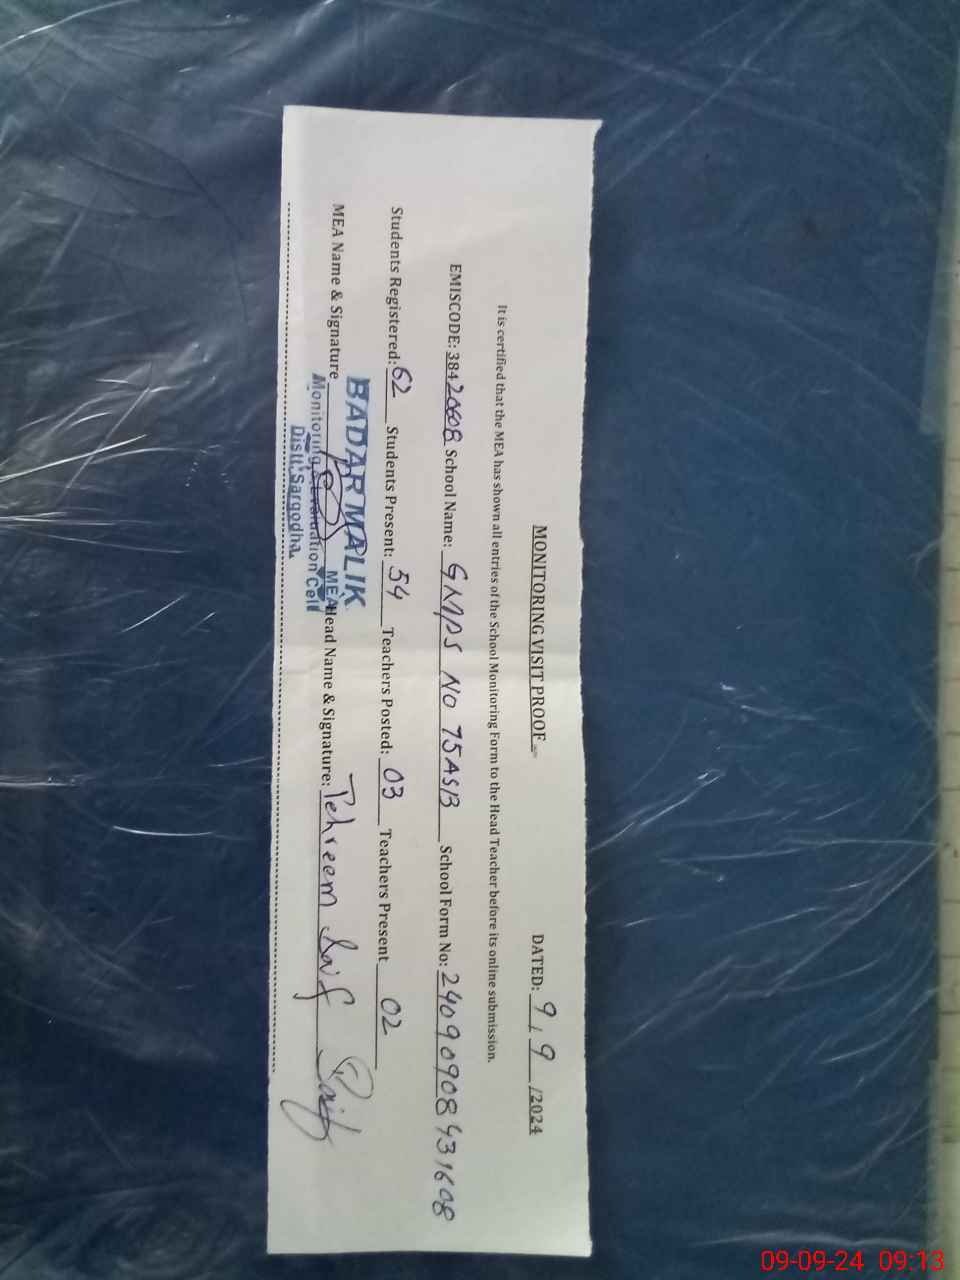 MONITORING VISIT PROOF
DATED: 9/9/2024
It is certified that the MEA has shown all entries of the School Monitoring Form to the Head Teacher before its online submission.
EMISCODE: 38420608 School Name: GMPS NO 75ASB School Form No: 24090908431608
Students Registered: 62 Students Present: 54 Teachers Posted: 03 Teachers Present 02
MEA Name & Signature Head Name & Signature: Tehreem Saif
BADAR MALIK
MEA
Monitoring & Evaluation Cell
Distt. Sargodha.
09-09-24 09:13